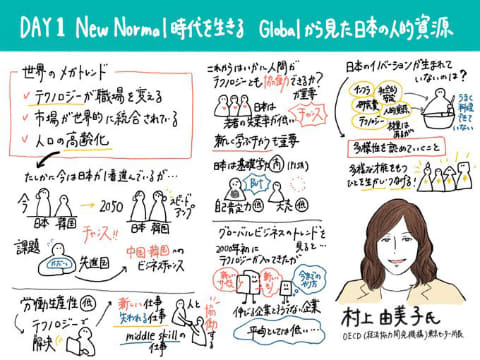 DAY 1 New Normal 時代を生きる Globalから見た日本の人的資源
世界のメガトレンド
✓ テクノロジーが職場を変える
✓ 市場が世界的に統合されている
✓ 人口の高齢化
たしかに今は日本が1番進んでいるが…
今
日本 韓国
2050
日本 韓国
スピード
アップ
チャンス!!
課題
先進国
中国・韓国への
ビジネスチャンス
労働生産性 低
テクノロジーで
解決
新しい仕事
失われる仕事
middle skillの
仕事
人と
協働
する
これからはいかに人間が
テクノロジーと協働できるか?
が重要
日本は
若者の失業率が低い
チャンス
新しく学ぶ力も重要
日本は基礎学力 高
BUT
自己肯定力 低
グローバルビジネスのトレンドを
見ると…
2000年初に
テクノロジーが入ってきたが
新しい
今までの
やり方
伸びる企業とそうでない企業
平均としては低い…
日本のイノベーションが生まれて
いないのは?
インフラ
研究費
人的資源
テクノロジー
技術は
あるが
うまく
料理
できて
いない
多様性を認めていくこと
多様な才能をもつ
ひとを生かしつなげる!
村上 由美子氏
OECD (経済協力開発機構) 東京センター所長